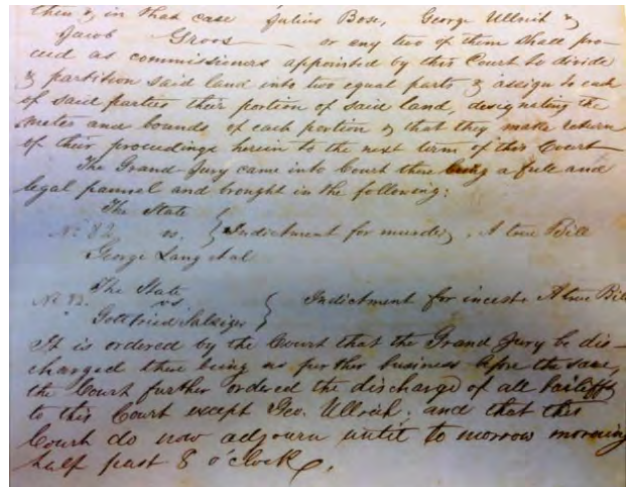 then & in that case Julius Bose, George Ullrich &
Jacob Groos — or any two of them shall pro-
ceed as commissioners appointed by this Court to divide
& partition said land into two equal parts & assign to each
of said parties their portion of said land, designating the
metes and bounds of each portion & that they make return
of their proceedings herein to the next term of this Court
The Grand-Jury came into Court there being a full and
legal pannel and brought in the following:
The State
No 82 vs. } Indictment for murder, A true Bill
George Lang et al
The State
No 83. vs } Indictment for incest. A true Bill
Gottfried
It is ordered by the Court that the Grand Jury be dis-
charged there being no further business before the same,
the Court further ordered the discharge of all bailiffs
to this Court except Geo. Ullrich; and that this
Court do now adjourn until to morrow morning
half past 8 o'clock.